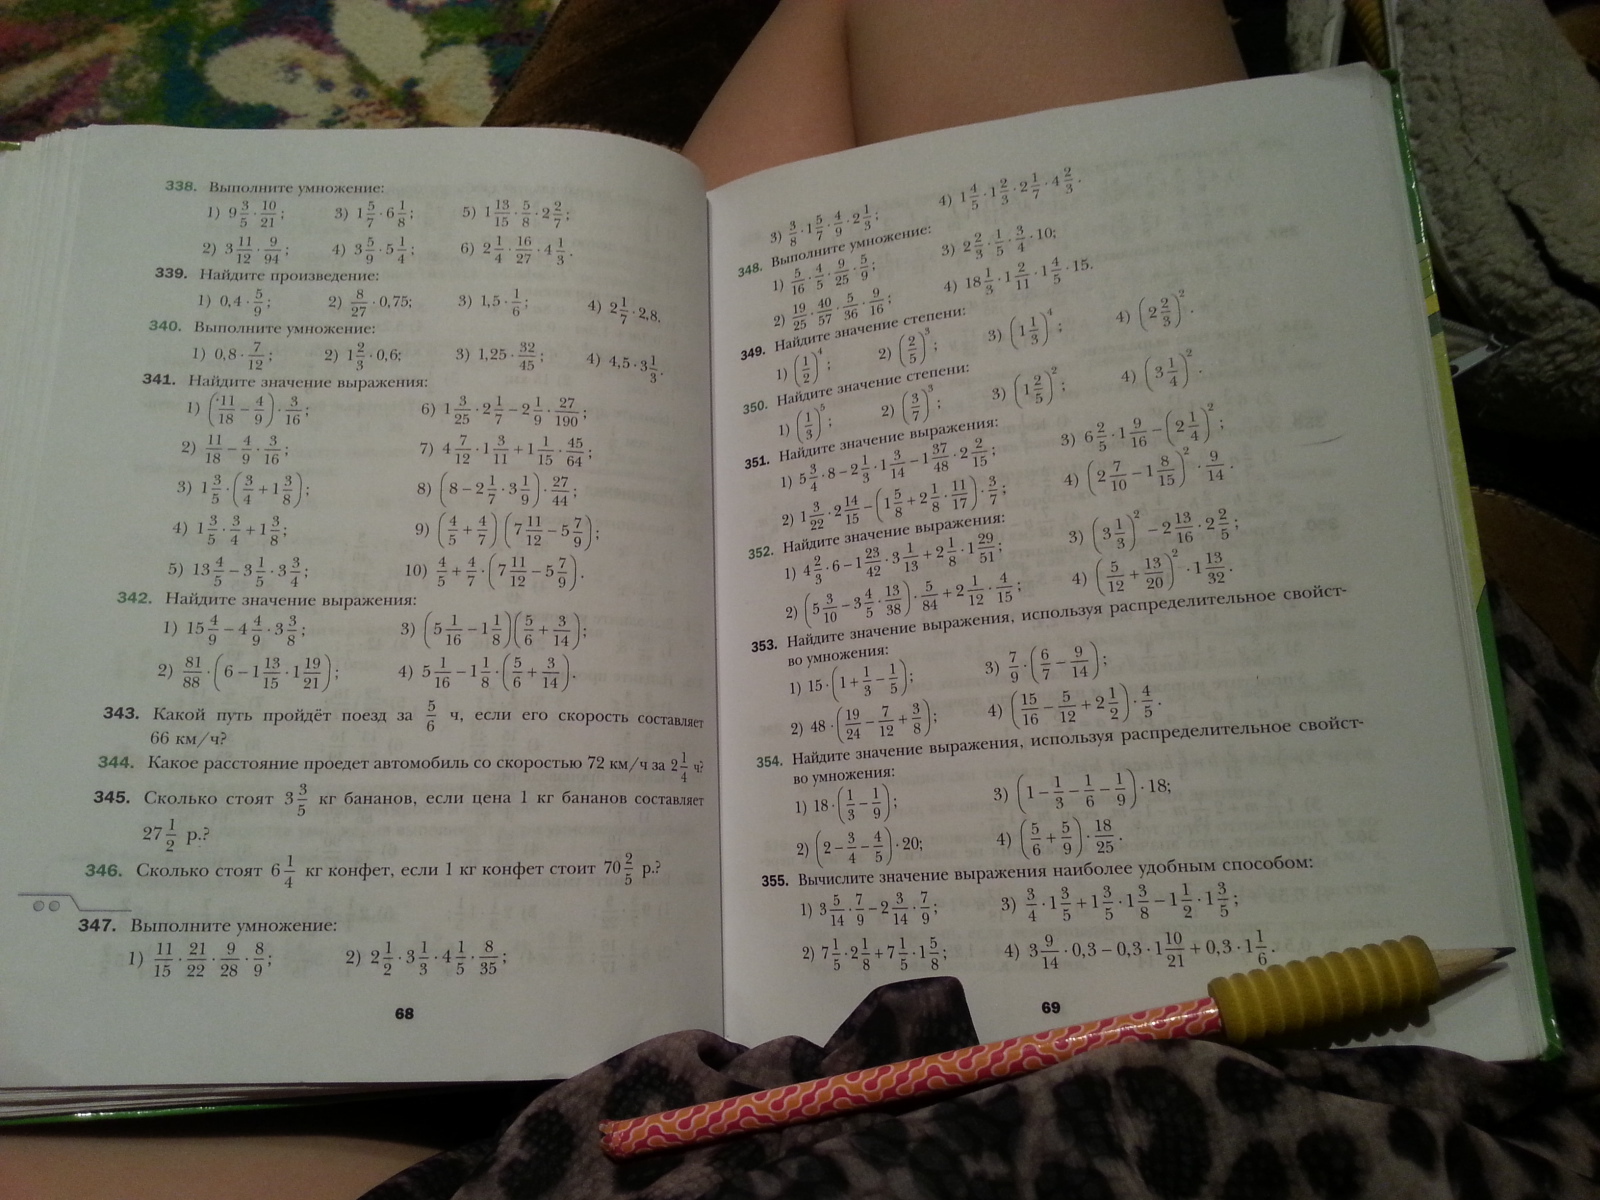 338. Выполните умножение:
1) 9 3/5 · 10/21; 3) 1 5/7 · 6 1/8; 5) 1 13/15 · 5/8 · 2 2/7;
2) 3 11/12 · 9/94; 4) 3 5/9 · 5 1/4; 6) 2 1/4 · 16/27 · 4 1/3.
339. Найдите произведение:
1) 0,4 · 5/9; 2) 8/27 · 0,75; 3) 1,5 · 1/6; 4) 2 1/7 · 2,8.
340. Выполните умножение:
1) 0,8 · 7/12; 2) 1 2/3 · 0,6; 3) 1,25 · 32/45; 4) 4,5 · 3 1/3.
341. Найдите значение выражения:
1) (11/18 − 4/9) · 3/16; 6) 1 3/25 · 2 1/7 − 2 1/9 · 27/190;
2) 11/18 − 4/9 · 3/16; 7) 4 7/12 · 1 3/11 + 1 1/15 · 45/64;
3) 1 3/5 · (3/4 + 1 3/8); 8) (8 − 2 1/7 · 3 1/9) · 27/44;
4) 1 3/5 · 3/4 + 1 3/8; 9) (4/5 + 4/7) (7 11/12 − 5 7/9);
5) 13 4/5 − 3 1/5 · 3 3/4; 10) 4/5 + 4/7 · (7 11/12 − 5 7/9).
342. Найдите значение выражения:
1) 15 4/9 − 4 4/9 · 3 3/8; 3) (5 1/16 − 1 1/8)(5/6 + 3/14);
2) 81/88 · (6 − 1 13/15 · 1 19/21); 4) 5 1/16 − 1 1/8 · (5/6 + 3/14).
343. Какой путь пройдёт поезд за 5/6 ч, если его скорость составляет
66 км/ч?
344. Какое расстояние проедет автомобиль со скоростью 72 км/ч за 2 1/4 ч?
345. Сколько стоят 3 3/5 кг бананов, если цена 1 кг бананов составляет
27 1/2 р.?
346. Сколько стоят 6 1/4 кг конфет, если 1 кг конфет стоит 70 2/5 р.?
347. Выполните умножение:
1) 11/15 · 21/22 · 9/28 · 8/9; 2) 2 1/2 · 3 1/3 · 4 1/5 · 8/35;
68
3) 3/8 · 1 5/7 · 4/9 · 2 1/3; 4) 1 4/5 · 1 2/3 · 2 1/7 · 4 2/3.
348. Выполните умножение:
1) 5/16 · 4/5 · 9/25 · 5/9; 3) 2 2/3 · 1/5 · 3/4 · 10;
2) 19/25 · 40/57 · 5/36 · 9/16; 4) 18 1/3 · 1 2/11 · 1 4/5 · 15.
349. Найдите значение степени:
1) (1/2)^4; 2) (2/5)^3; 3) (1 1/3)^4; 4) (2 2/3)^2.
350. Найдите значение степени:
1) (1/3)^5; 2) (3/7)^3; 3) (1 2/5)^2; 4) (3 1/4)^2.
351. Найдите значение выражения:
1) 5 3/4 · 8 − 2 1/3 · 1 3/14 − 1 37/48 · 2 2/15; 3) 6 2/5 · 1 9/16 − (2 1/4)^2;
2) 1 3/22 · 2 14/15 − (1 5/8 + 2 1/8 · 11/17) · 3/7; 4) (2 7/10 − 1 8/15)^2 · 9/14.
352. Найдите значение выражения:
1) 4 2/3 · 6 − 1 23/42 · 3 1/13 + 2 1/8 · 1 29/51; 3) (3 1/3)^2 − 2 13/16 · 2 2/5;
2) (5 3/10 − 3 4/5 · 13/38) · 5/84 + 2 1/12 · 4/15; 4) (5/12 + 13/20)^2 · 1 13/32.
353. Найдите значение выражения, используя распределительное свойст-
во умножения:
1) 15 · (1 + 1/3 − 1/5); 3) 7/9 · (6/7 − 9/14);
2) 48 · (19/24 − 7/12 + 3/8); 4) (15/16 − 5/12 + 2 1/2) · 4/5.
354. Найдите значение выражения, используя распределительное свойст-
во умножения:
1) 18 · (1/3 − 1/9); 3) (1 − 1/3 − 1/6 − 1/9) · 18;
2) (2 − 3/4 − 4/5) · 20; 4) (5/6 + 5/9) · 18/25.
355. Вычислите значение выражения наиболее удобным способом:
1) 3 5/14 · 7/9 − 2 3/14 · 7/9; 3) 3/4 · 1 3/5 + 1 3/5 · 1 3/8 − 1 1/2 · 1 3/5;
2) 7 1/5 · 2 1/8 + 7 1/5 · 1 5/8; 4) 3 9/14 · 0,3 − 0,3 · 1 10/21 + 0,3 · 1 1/6.
69